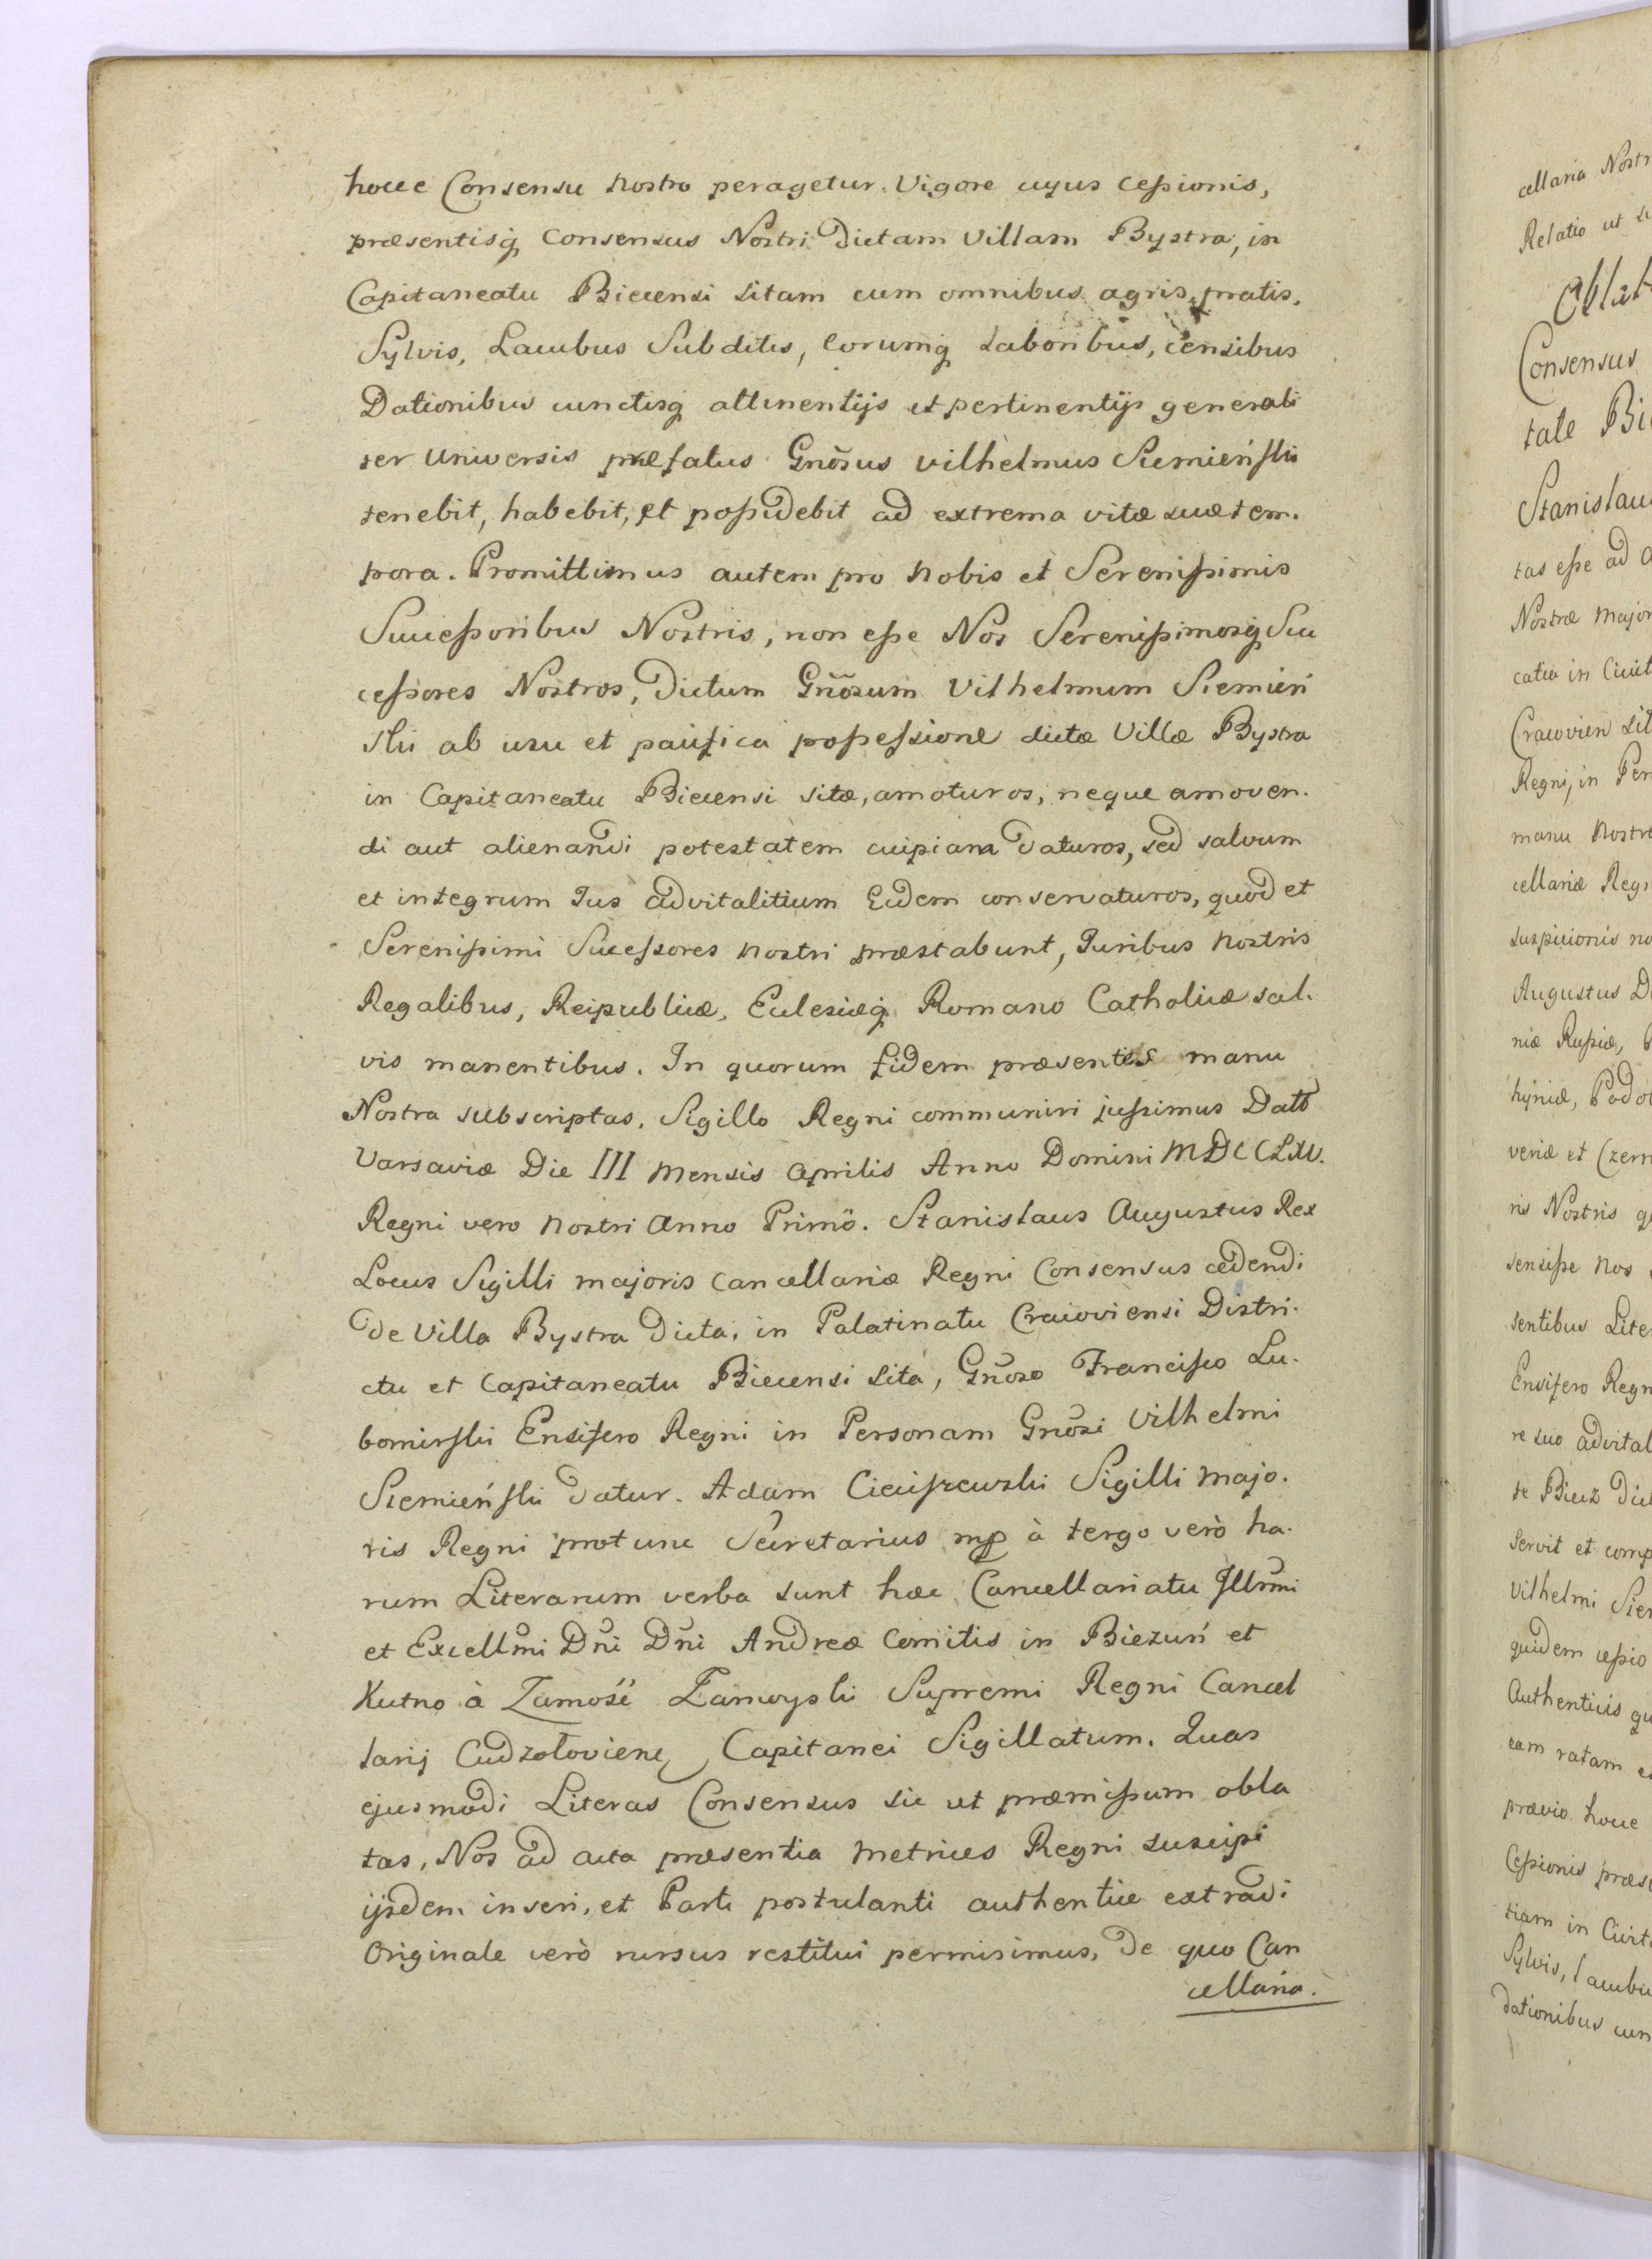 hocce Consensu nostro peragetur. Vigore cujus cessionis,
præsentisq; Consensus Nostri Dictam Villam Bystra, in
Capitaneatu Biecensi sitam cum omnibus agris, pratis,
Sylvis, Lacubus Subditis, Eorumq; Laboribus, censibus
Dationibus cunctisq; attinentijs et pertinentijs generali
ter Universis præfatus Gnōsus Vilhelmus Siemieński
tenebit, habebit, et possidebit ad extrema vitæ suæ tem.
pora. Promittimus autem pro nobis et Serenissimis
Successoribus Nostris, non esse Nos Serenissimosq; Suc
cessores Nostros, Dictum Gnōsum Vilhelmum Siemień
ski ab usu et pacifica possessione dictæ Villæ Bystra
in Capitaneatu Biecensi sitæ, amoturos, neque amoven.
di aut alienandi potestatem cuipiam daturos, sed salvum
et integrum Jus advitalitium Eidem conservaturos, quod et
Serenissimi Sucessores nostri præstabunt, Juribus nostris
Regalibus, Reipublicæ, Eclesiæq; Romano Catholicæ sal.
vis manentibus. In quorum fidem præsentes manu
Nostra subscriptas, Sigillo Regni communiri jussimus Datt
Varsaviæ Die III Mensis Aprilis Anno Domini MDCCLXV.
Regni vero nostri Anno Primō. Stanislaus Augustus Rex
Locus Sigilli majoris Cancellariæ Regni Consensus cedendi
de Villa Bystra dicta, in Palatinatu Cracoviensi Distri.
ctu et Capitaneatu Biecensi sita, Gnōso Francisco Lu.
bomirski Ensifero Regni in Personam Gnōsi Vilhelmi
Siemieński datur. Adam Cieciszewski Sigilli majo.
ris Regni protunc Secretarius mp à tergo verò ha.
rum Literarum verba sunt hæc Cancellariatu Jllūmi
et Excellm̄i Dn̄i Dn̄i Andreæ Comitis in Biezuń et
Kutno à Zamość Zamoyski Supremi Regni Cancel
larij Cudzołovien, Capitanei Sigillatum. Quas
ejusmodi Literas Consensus sic ut præmissum obla
tas, Nos ad acta præsentia Metrices Regni suscipi
ijsdem inseri, et Parti postulanti authentice extradi
Originale verò rursus restitui permisimus, de quo Can
cellaria.
cellaria Nostr
Relatio ut
Oblat
Consensus
tale Bi
Stanislau
tas esse ad
Nostræ major
catis in Civit
Cracovien sit
Regni, in Per
manu nostr
cellariæ Reg
suspicionis no
Augustus D
niæ Russiæ,
hyniæ, Podo
veriæ et Czern
ris Nostris q
sensisse nos
sentibus Lite
Ensifero Regn
re suo advital
te Biecz dic
servit et comp
Vilhelmi Sie
quidem cessio
Authenticis qu
eam ratam e
prævio hocce
Cessionis præs
tiam in Civit
Sylvis, lacubu
dationibus cun